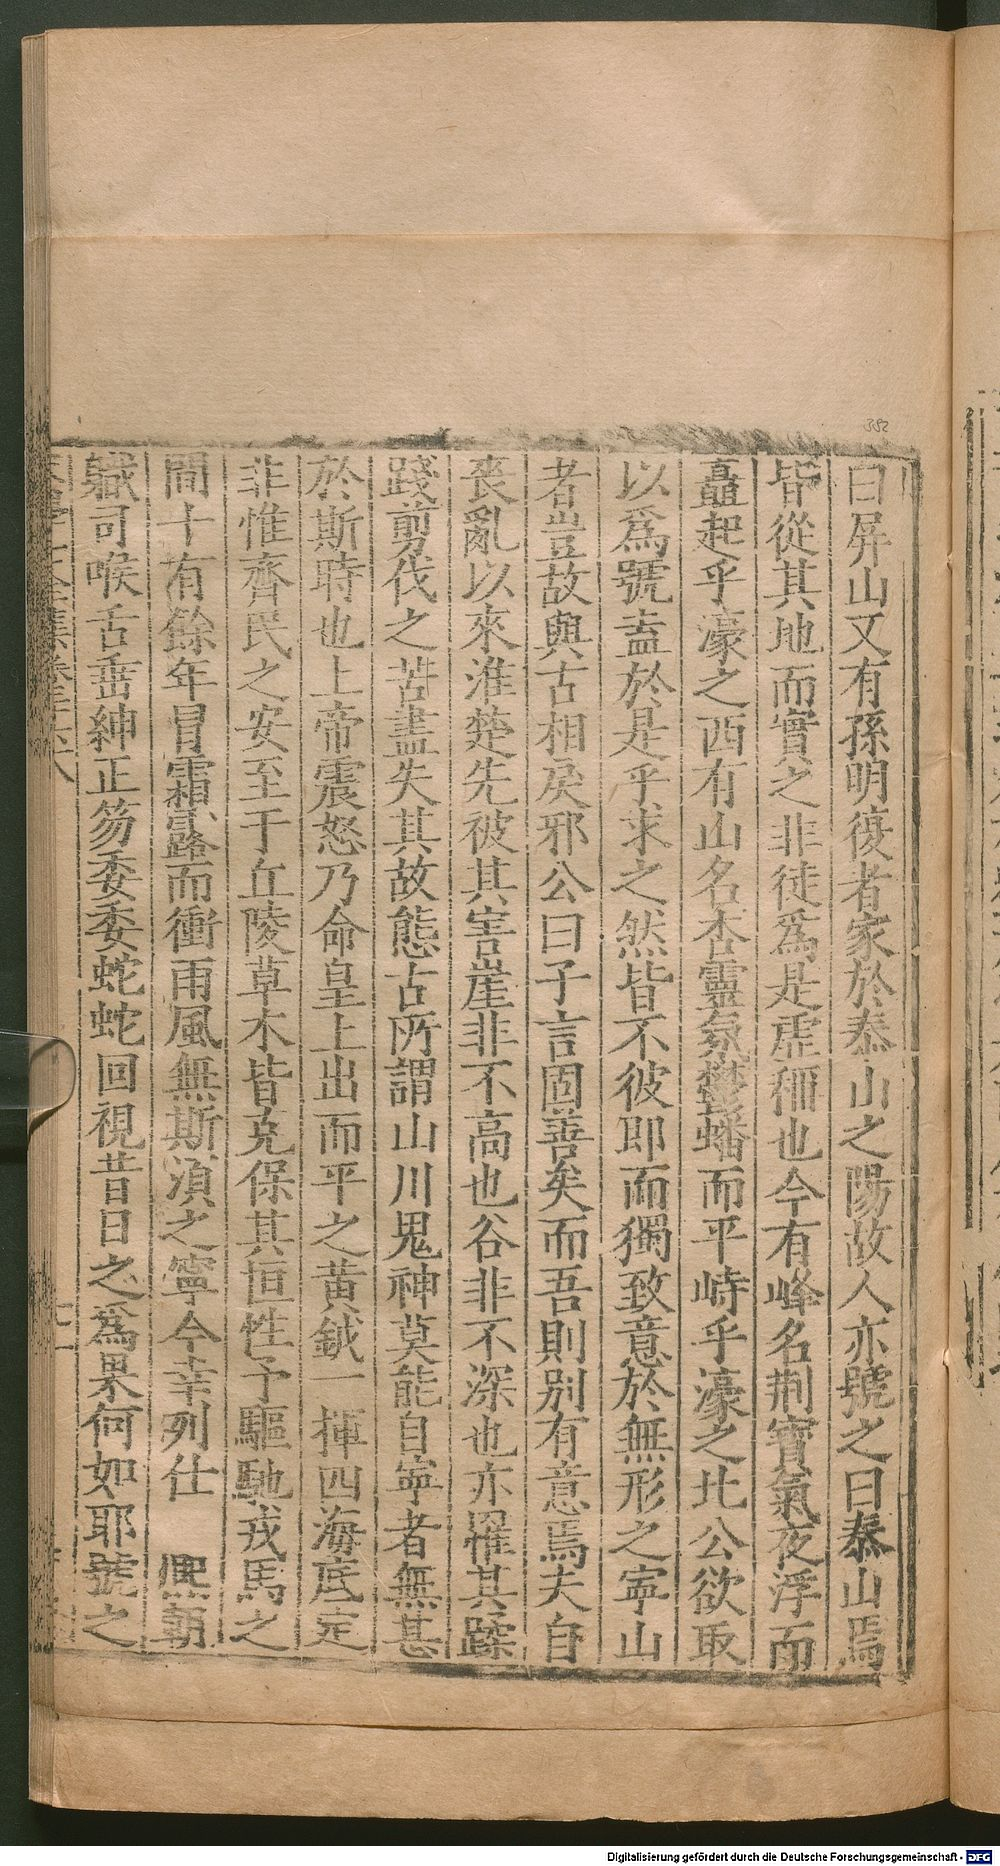 352
曰屏山又有孫明復者家於泰山之陽故人亦號之曰泰山焉
皆從其地而實之非徒爲是虛稱也今有峰名荆寶氣夜浮而
矗起乎濠之西有山名杏靈氛鬱蟠而平峙乎濠之北公欲取
以爲號盍於是乎求之然皆不彼即而獨致意於無形之寜山
者豈故與古相戾邪公曰子言固善矣而吾則别有意焉夫自
喪亂以來淮楚先被其害崖非不高也谷非不深也亦罹其蹂
踐剪伐之苦盡失其故態古所謂山川鬼神莫能自寧者無甚
於斯時也上帝震怒乃命皇上出而平之黄鉞一揮四海底定
非惟齊民之安至于丘陵草木皆克保其恒性予驅馳戎馬之
間十有餘年冒霜露而衝雨風無斯湏之寧今幸列仕 熈朝
職司喉舌垂紳正笏委委蛇蛇回視昔日之爲果何如耶號之
Digitalisierung gefördert durch die Deutsche Forschungsgemeinschaft - DFG